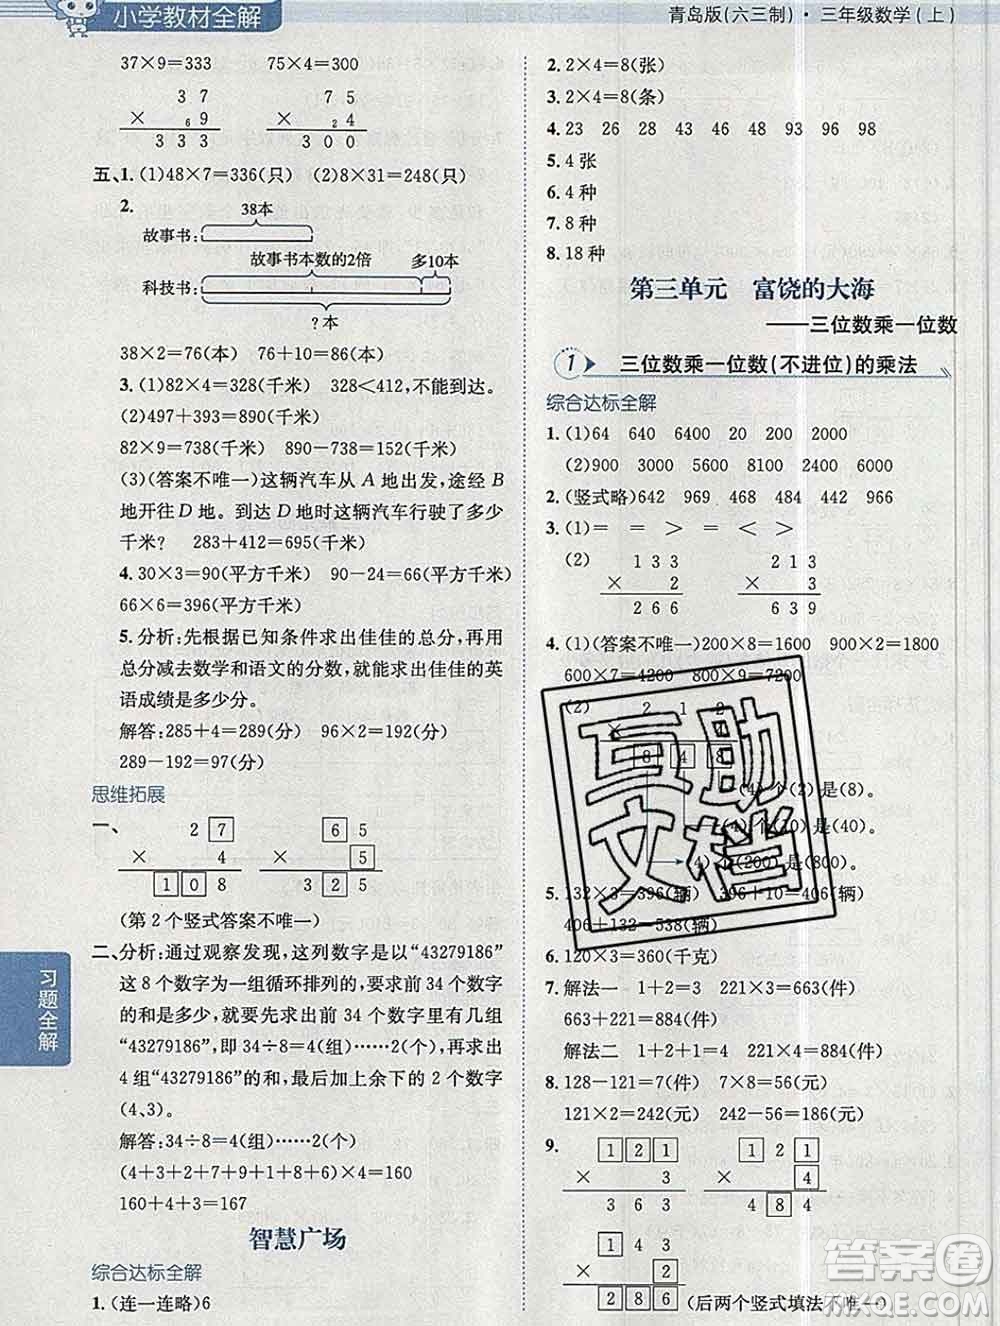 小学教材全解
青岛版(六三制)·三年级数学(上)
37×9=333 75×4=300
3 7
× ₆9
3 3 3
7 5
× ₂4
3 0 0
五、1. (1)48×7=336(只) (2)8×31=248(只)
2.
38本
故事书:
故事书本数的2倍 多10本
科技书:
?本
38×2=76(本) 76+10=86(本)
3. (1)41×8=328(千米) 328<412,不能到达。
(2)497+393=890(千米)
82×9=738(千米) 890-738=152(千米)
(3)(答案不唯一)这辆汽车从A地出发,途经B
地开往D地。到达D地时这辆汽车行驶了多少
千米? 283+412=695(千米)
4. 30×3=90(平方千米) 90-24=66(平方千米)
66×6=396(平方千米)
5. 分析:先根据已知条件求出佳佳的总分,再用
总分减去数学和语文的分数,就能求出佳佳的英
语成绩是多少分。
解答:285+4=289(分) 96×2=192(分)
289-192=97(分)
思维拓展
一、
2 7
× 4
1 0 8
6 5
× 5
3 2 5
(第2个竖式答案不唯一)
二、分析:通过观察发现,这列数字是以“43279186”
这8个数字为一组循环排列的。要求前34个数字
的和是多少,就要先求出前34个数字里有几组
“43279186”,即34÷8=4(组)……2(个),再求出
4组“43279186”的和,最后加上余下的2个数字
(4、3)。
解答:34÷8=4(组)……2(个)
(4+3+2+7+9+1+8+6)×4=160
160+4+3=167
智慧广场
综合达标全解
1. (连一连略)6
习题全解
2. 2×4=8(张)
3. 2×4=8(条)
4. 23 26 28 43 48 93 96 98
5. 4张
6. 4种
7. 8种
8. 18种
第三单元 富饶的大海
——三位数乘一位数
1 三位数乘一位数(不进位)的乘法
综合达标全解
1. (1)64 640 6400 20 200 2000
(2)900 3000 6000 800 2800 6000
2. (竖式略)642 969 468 484 442 966
3. (1)= = > = < <
(2)
1 3 3
× 2
2 6 6
2 1 3
× 3
6 3 9
4. (1)(答案不唯一)200×8=1600 900×2=1800
600×7=4200 800×9=7200
(2)
2 1 2
×
8 4 8
(4)个(2)是(8)。
(4)个(10)是(40)。
(4)个(200)是(800)。
5. 132×3=396(辆) 396+10=406(辆)
406+132=538(辆)
6. 120×3=360(千克)
7. 解法一 1+2=3 221×3=663(件)
663+221=884(件)
解法二 1+2+1=4 221×4=884(件)
8. 128-121=7(件) 7×8=56(元)
121×2=242(元) 242-56=186(元)
9.
1 2 1
× 3
3 6 3
1 2 1
× 4
4 8 4
1 4 3
× 2
2 8 6
(后两个竖式填法不唯一)
互助
文档
答案圈